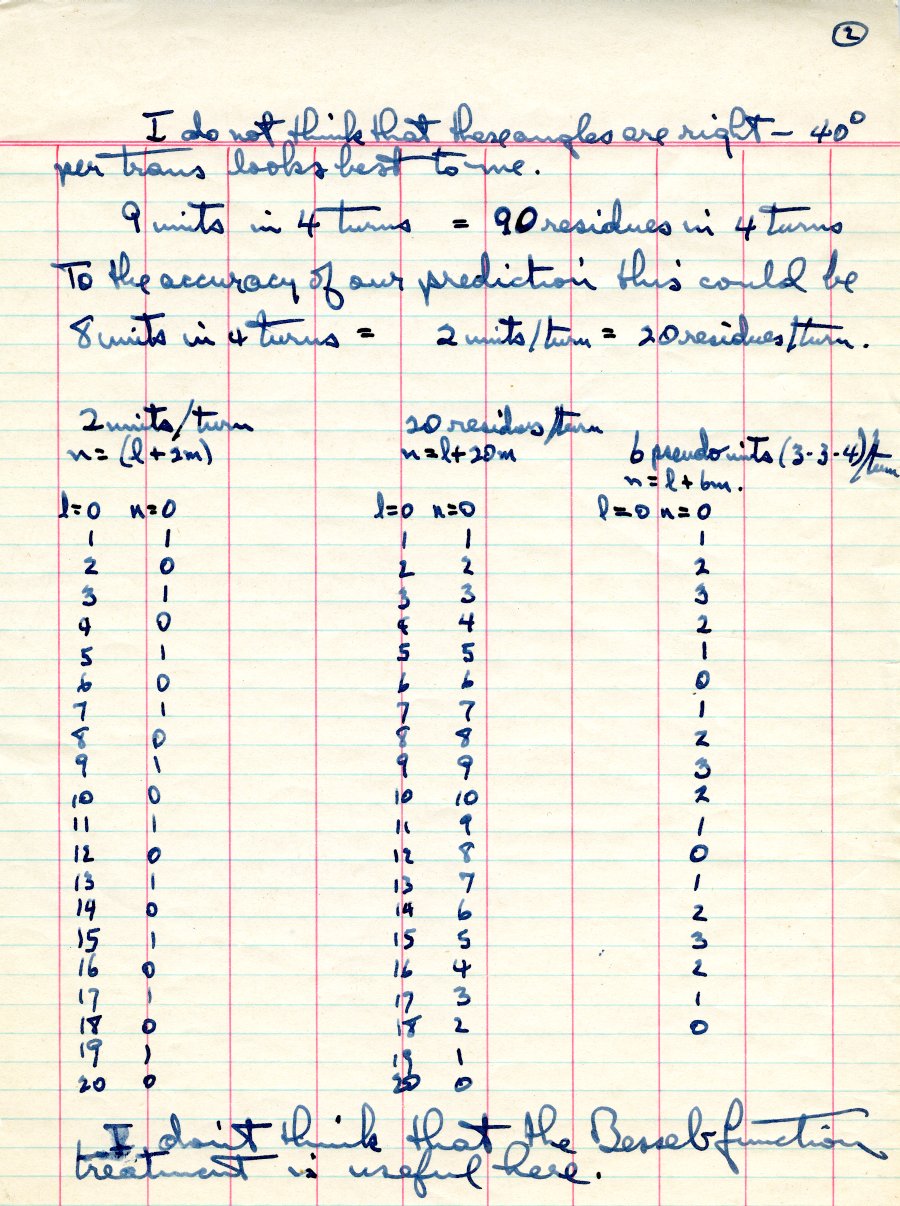 2
I do not think that these angles are right – 40°
per trans looks best to me.
9 units in 4 turns = 90 residues in 4 turns
To the accuracy of our prediction this could be
8 units in 4 turns = 2 units/turn = 20 residues/turn.
2 units/turn 20 residues/turn
n = (l + 2m) n = l + 20m 6 pseudounits (3-3-4)/turn
n = l + 6m.
l=0 n=0 l=0 n=0 l=0 n=0
1 1 1 1 1
2 0 2 2 2
3 1 3 3 3
4 0 4 4 2
5 1 5 5 1
6 0 6 6 0
7 1 7 7 1
8 0 8 8 2
9 1 9 9 3
10 0 10 10 2
11 1 11 9 1
12 0 12 8 0
13 1 13 7 1
14 0 14 6 2
15 1 15 5 3
16 0 16 4 2
17 1 17 3 1
18 0 18 2 0
19 1 19 1
20 0 20 0
I don't think that the Bessel-function
treatment is useful here.